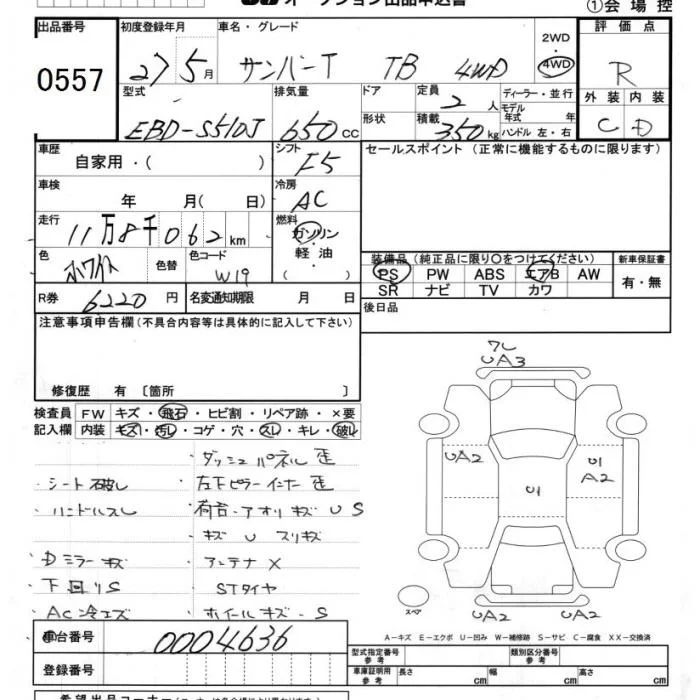 オークション出品申込書 ①会場控
出品番号 0557
初度登録年月 27 5月
車名・グレード サンバーT TB 4WD
2WD・4WD
評価点 R
外装 C 内装 D
型式 EBD-S510J
排気量 650cc
ドア 形状
定員 2人
積載 350kg
ディーラー・並行
モデル年式 年
ハンドル 左・右
車歴 自家用・( )
シフト F5
セールスポイント(正常に機能するものに限ります)
車検 年 月( 日)
冷房 AC
走行 11万8千062km
燃料 ガソリン・軽油・( )
色 ホワイト 色替
色コード W19
装備品(純正品に限り○をつけてください)
PS PW ABS エアB AW
SR ナビ TV カワ
新車保証書 有・無
R券 6220円
名変通知期限 月 日
後日品
注意事項申告欄(不具合内容等は具体的に記入して下さい)
修復歴 有〔箇所 〕
検査員記入欄
FW キズ・飛石・ヒビ割・リペア跡・×要
内装 キズ・汚し・コゲ・穴・スレ・キレ・破し
・ダッシュパネル歪
・シート破し ・左下ピラーインナー歪
・ハンドルスレ ・荷台・アオリキズ U S
・キズ U スリキズ
・Dミラーキズ ・アンテナX
・下回りS ・STタイヤ
・AC冷エズ ・ホイールキズ・S
フレ
UA3
UA2
U1
U1
A2
スペア
UA2 UA2
A-キズ E-エクボ U-凹み W-補修跡 S-サビ C-腐食 XX-交換済
車台番号 0004636
登録番号
型式指定番号 参考
類別区分番号 参考
車庫証明用 参考 長さ cm 幅 cm 高さ cm
希望出品コーナー